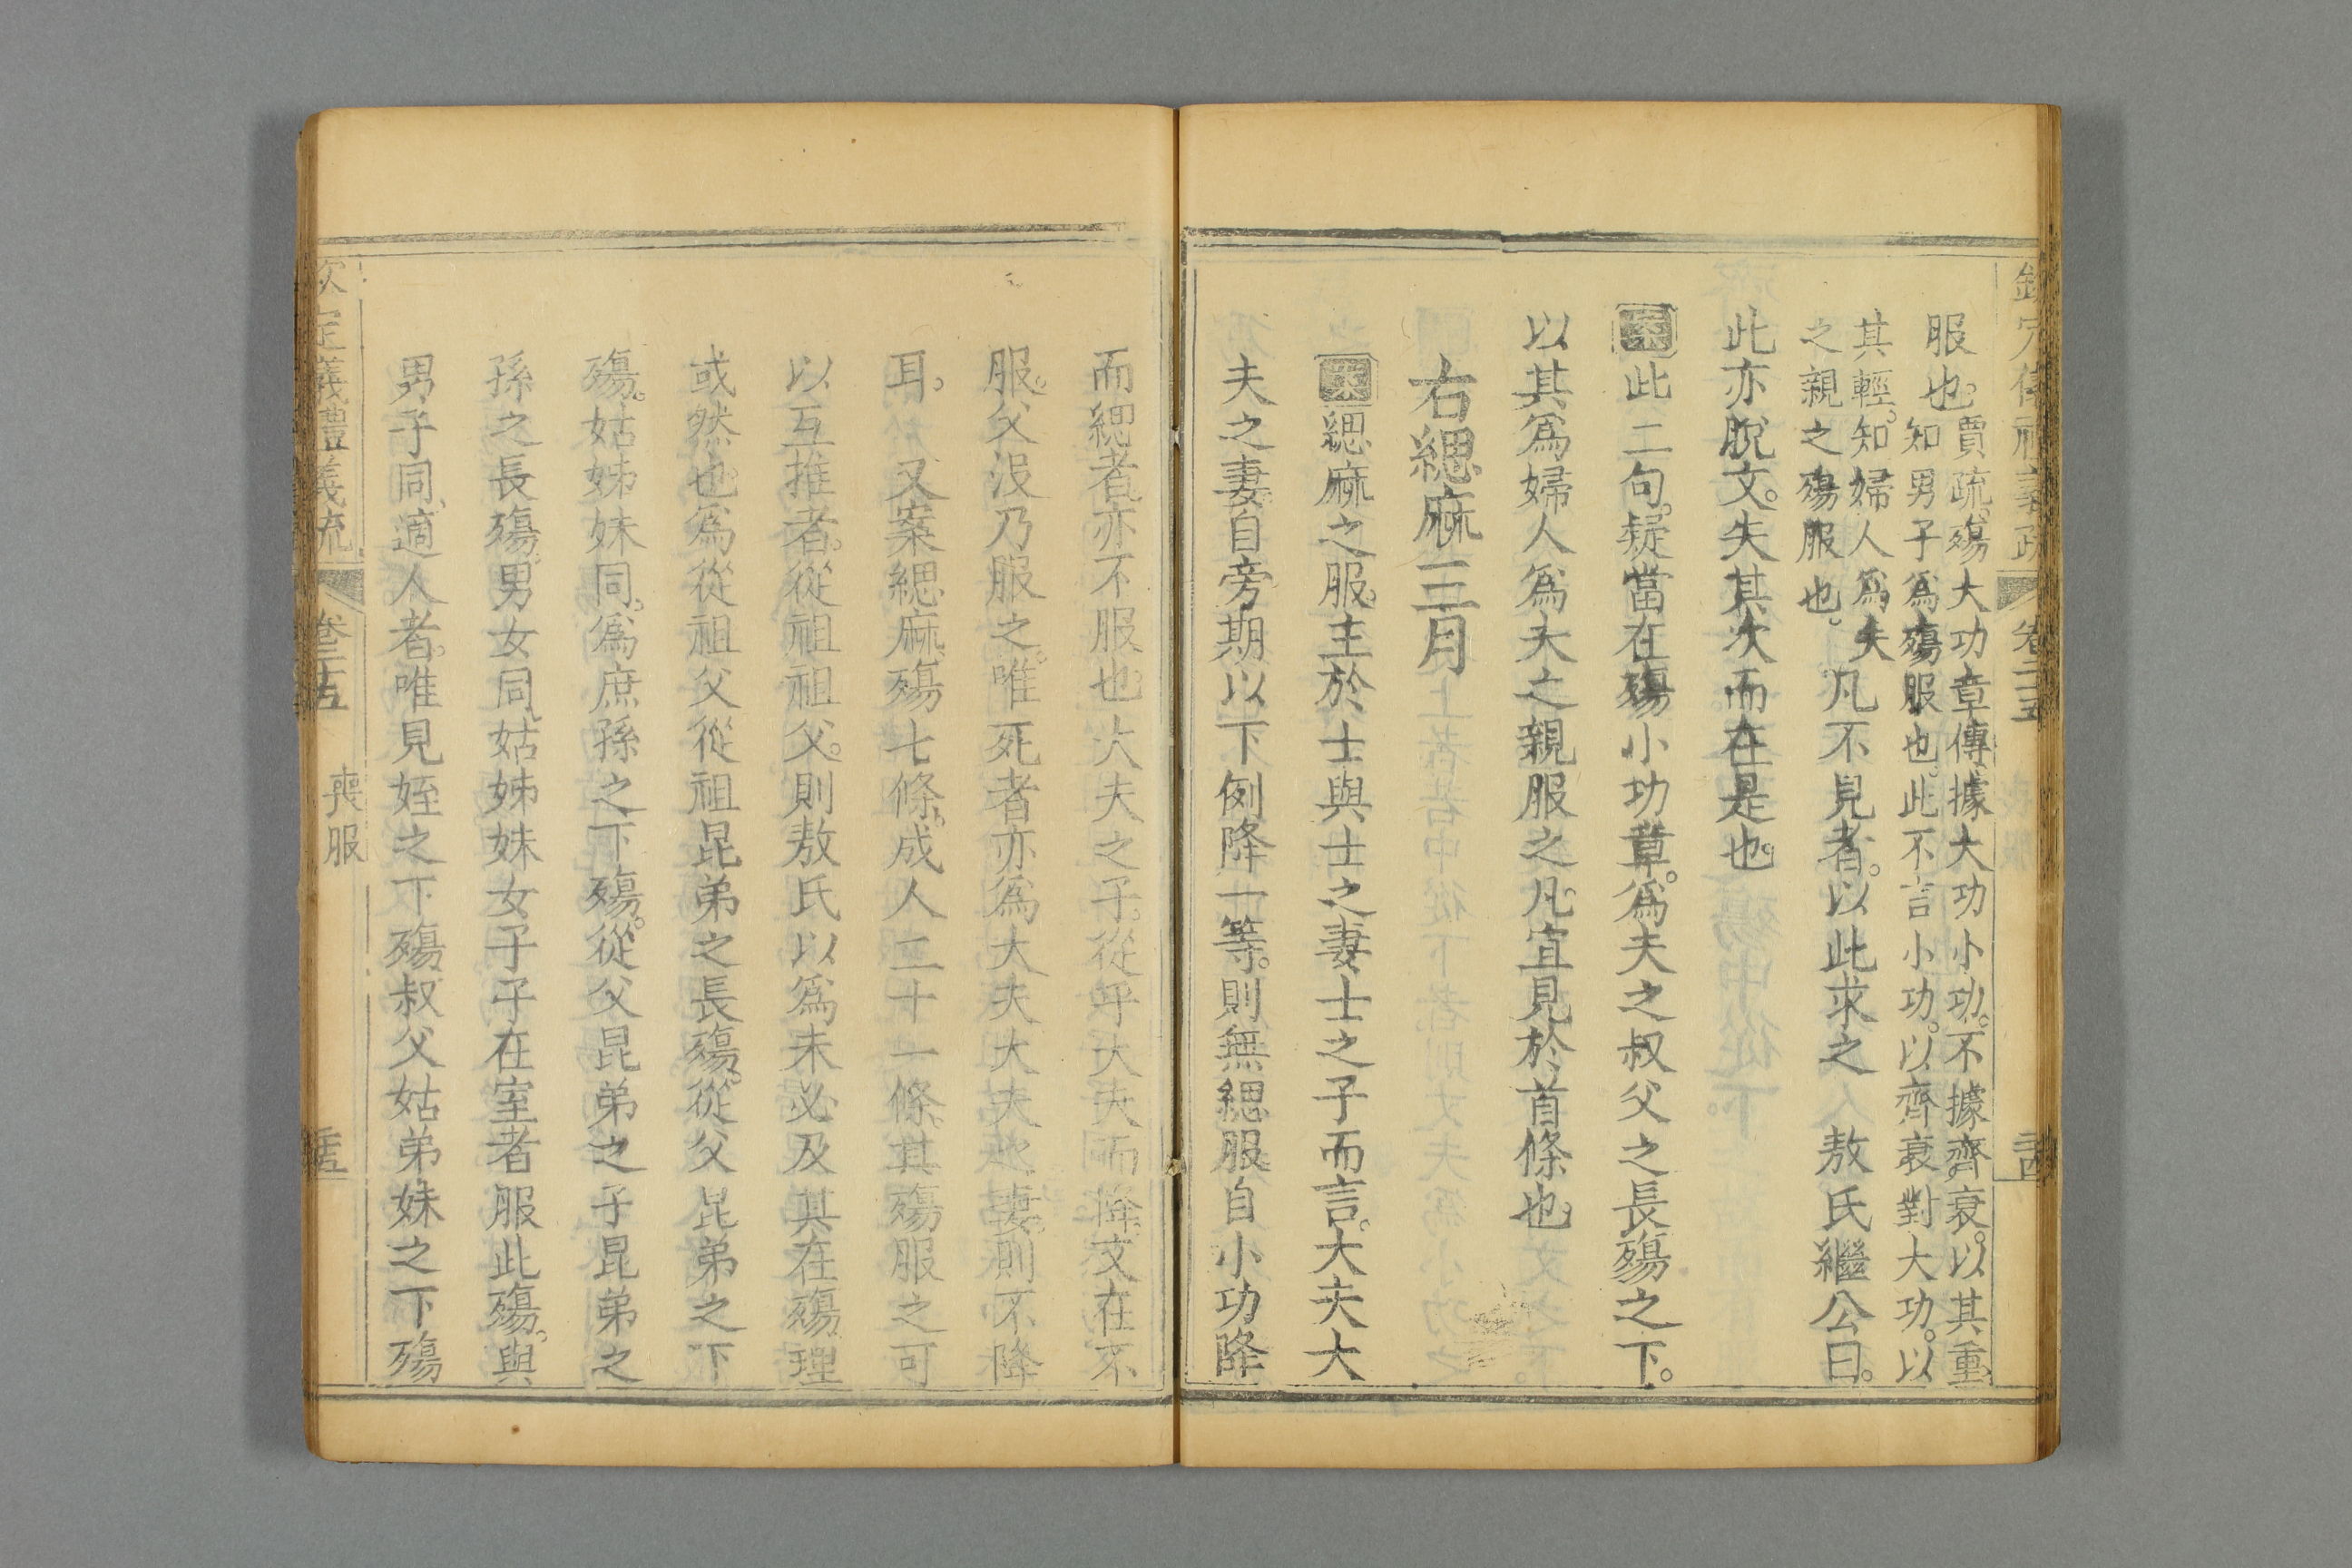 服也。賈疏。殤大功章傳。據大功小功。不據齊衰。以其重。
知男子爲殤服也。此不言小功。以齊衰對大功。以
其輕。知婦人爲夫
之親之殤服也。
凡不見者。以此求之 敖氏繼公曰。
此亦脫文。失其次而在是也。
案此二句。疑當在殤小功章。爲夫之叔父之長殤之下。
以其爲婦人爲夫之親服之凡。宜見於首條也。
右緦麻三月
案緦麻之服。主於士與士之妻士之子而言。大夫大
夫之妻。自旁期以下例降一等。則無緦服。自小功降
而緦者亦不服也。大夫之子。從乎大夫而降。父在不
服。父沒乃服之。唯死者亦爲大夫大夫之妻。則不降
耳。 又案緦麻。殤七條。成人二十一條。其殤服之可
以互推者。從祖祖父。則敖氏以爲未必及其在殤。理
或然也。爲從祖父從祖昆弟之長殤。從父昆弟之下
殤。姑姊妹同。爲庶孫之下殤。從父昆弟之子昆弟之
孫之長殤。男女同。姑姊妹女子子在室者服此殤。與
男子同。適人者。唯見姪之下殤叔父姑弟妹之下殤
欽定儀禮義疏 卷二十五 喪服